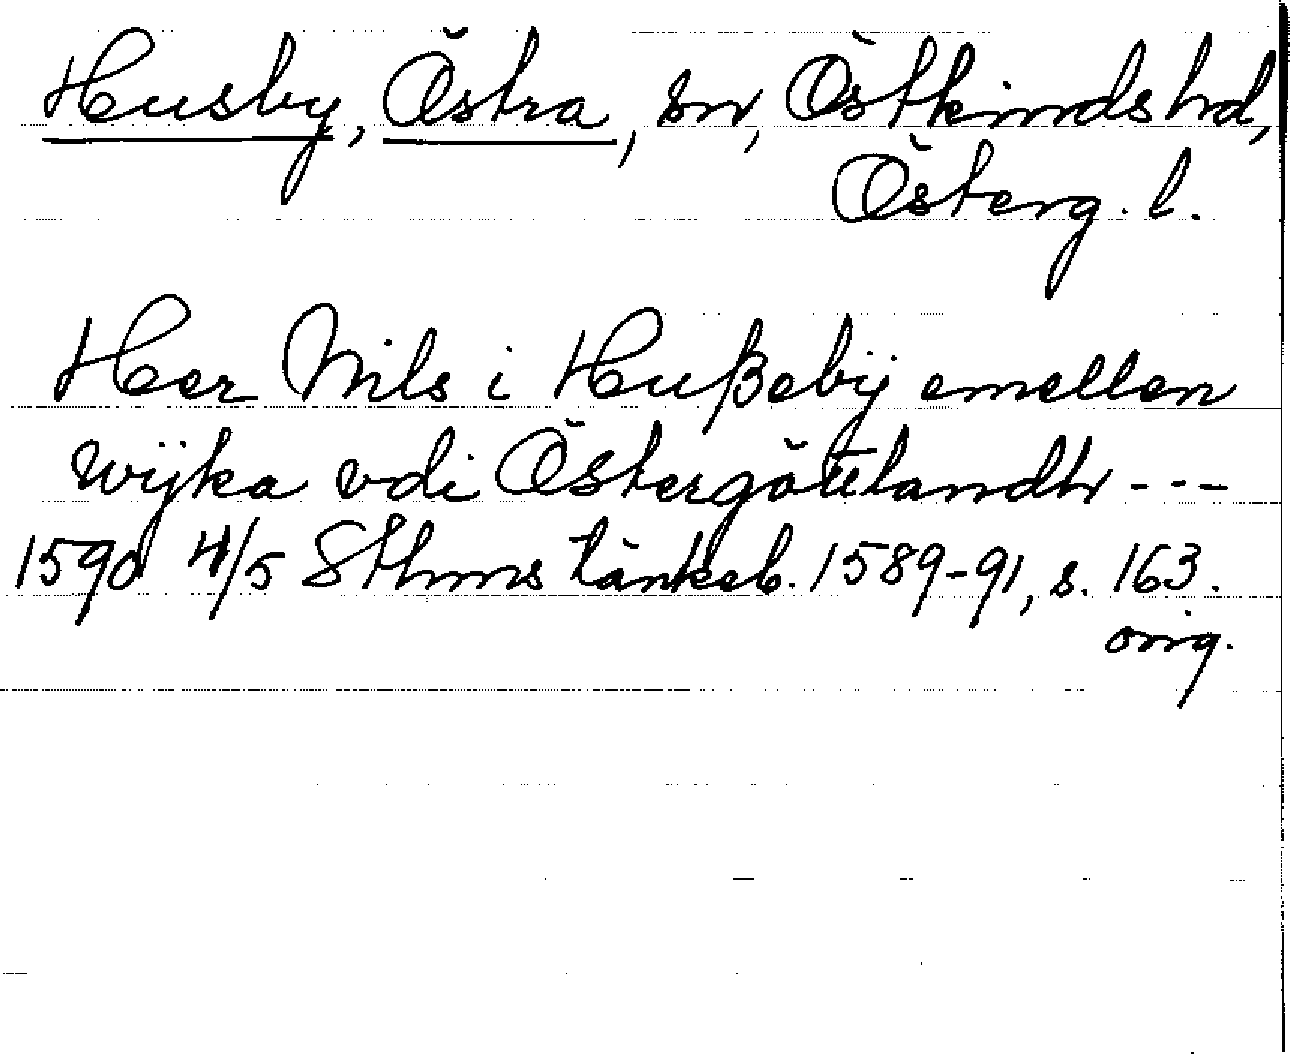 Husby, Östra, sn, Östkinds hd,
Österg. l.
Her Nils i Hußebÿ emellen
wijka vdi Östergöttlandh ---
1590 4/5 Sthms tänkeb. 1589-91, s. 163.
orig.